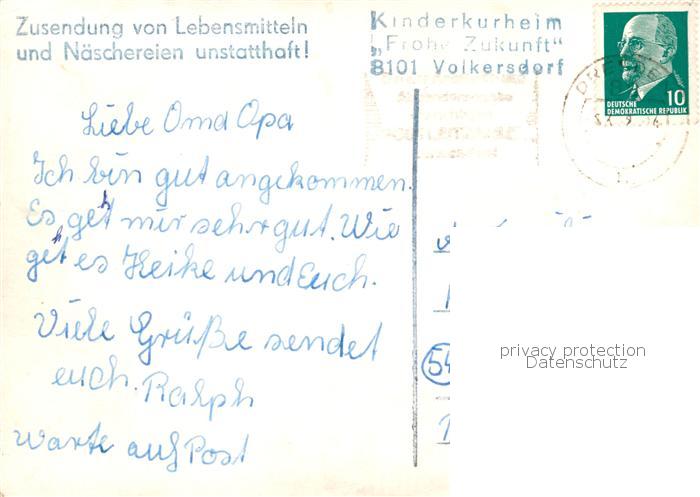 Zusendung von Lebensmitteln
und Näschereien unstatthaft!
Kinderkurheim
„Frohe Zukunft“
8101 Volkersdorf
DEUTSCHE
DEMOKRATISCHE REPUBLIK
10
Liebe Omd Opa
Ich bin gut angekommen.
Es geht mir sehr gut. Wie
geht es Heike und Euch.
Viele Grüße sendet
euch. Ralph
warte auf Post
privacy protection
Datenschutz